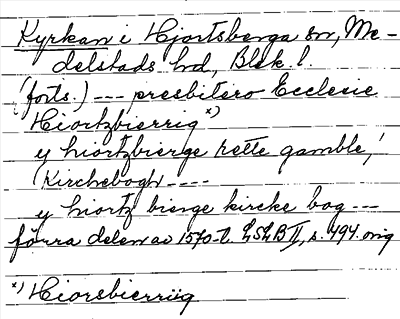 Kyrkan i Hjortsberga sn, Me-
delstads hd, Blek. l.
(forts.) --- presbitero Ecclesie
Hiortzbierrig *)
y hiortzbierge rette gamble,
Kirchebogh ----
y hiortz bierge kircke bog ---
förra delen av 1570-t. LSLB II, s. 494. orig
*) Hiorsbierriig